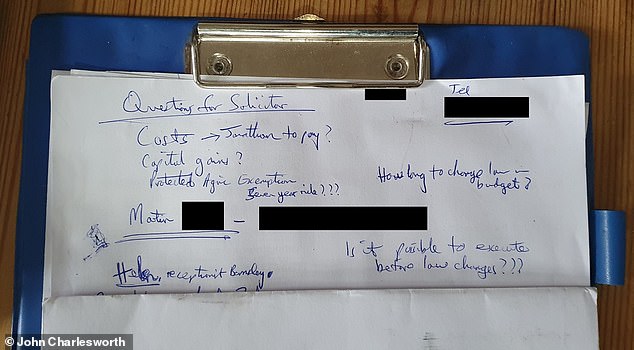 Questions for Solicitor
Tel
Costs → Jonathan to pay?
Capital gains?
Protected Agric Exemption
Seven year rule????
How long to change law in
budget?
–
Is it possible to execute
before law changes???
Helen, receptionist Barnsley.
© John Charlesworth